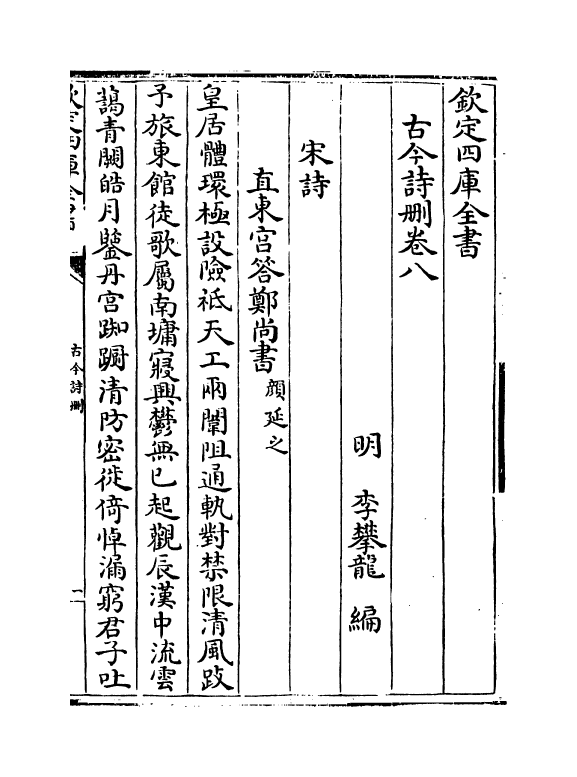 欽定四庫全書
古今詩刪卷八
明 李攀龍 編
宋詩
直東宮答鄭尚書 顔延之
皇居體環極設險祗天工兩闈阻通軌對禁限清風跂
予旅東館徒歌屬南墉寢興鬱無已起觀辰漢中流雲
藹青闕皓月鑒丹宮踟躕清防密徙倚恒漏窮君子吐
古今詩刪
一